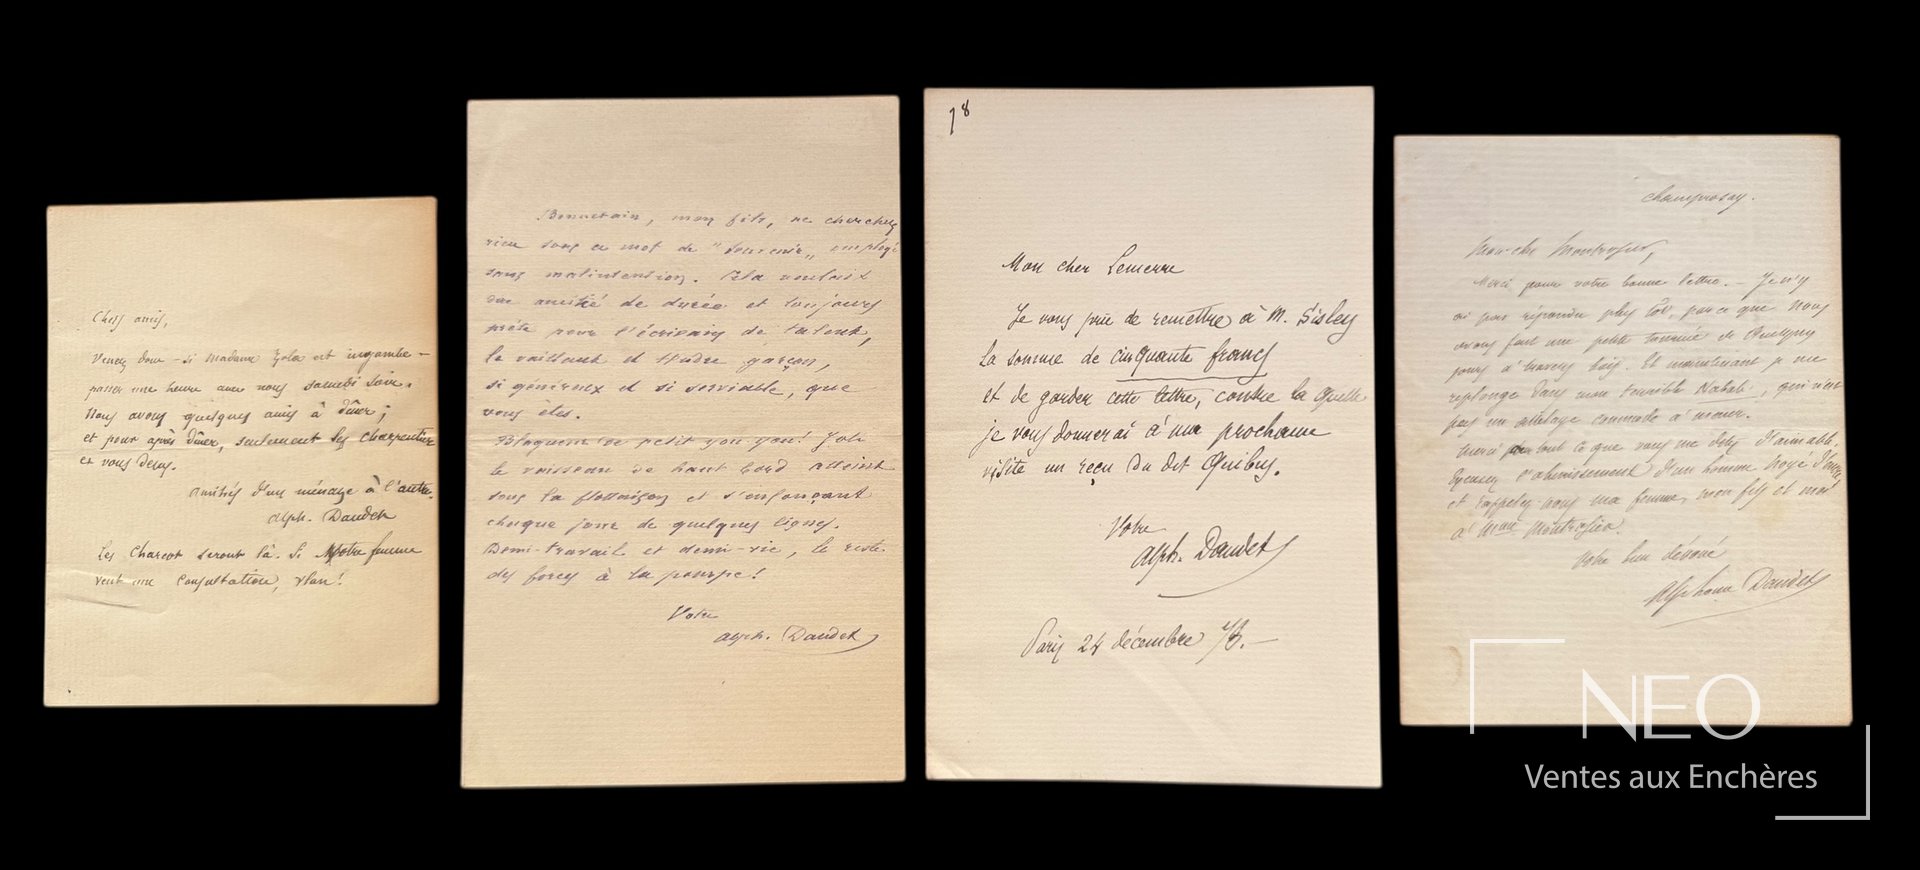 Chers amis,
Venez donc - si Madame Zola est ingambe -
passer une heure avec nous samedi soir.
Nous avons quelques amis à dîner;
et pour après dîner, seulement les Charpentier
et vous deux.
Amitiés d'un ménage à l'autre.
Alph. Daudet
Les Charcot seront là. Si Votre femme
veut une consultation, vlan!
Bonnetain, mon fils, ne cherchez
rien sous ce mot de "souvenir" employé
sans malintention. Il a voulait
une amitié de durée et toujours
prête pour l'écrivain de talent,
le vaillant et tendre garçon,
si généreux et si serviable, que
vous êtes.
Blaguez le petit you-you! Joli
le vaisseau de haut bord atteint
sous la flottaison et s'enfonçant
chaque jour de quelques lignes.
Demi-travail et demi-vie, le reste
des forces à la pompe!
Votre
Alph. Daudet
78
Mon cher Lemerre
Je vous prie de remettre à M. Sisley
la somme de cinquante francs
et de garder cette lettre, contre la quelle
je vous donnerai à ma prochaine
visite un reçu du dit Quibus.
Votre
Alph. Daudet
Paris 24 décembre 78. -
Champrosay.
Mon cher Montrosier,
Merci pour votre bonne lettre. - Je n'y
ai pas répondu plus tôt, parce que nous
avons fait une petite tournée de quelques
jours à travers bois. Et maintenant je me
replonge dans mon terrible Nabab, qui n'est
pas un attelage commode à mener.
Merci pour tout ce que vous me dites d'aimable.
Excusez l'ahurissement d'un homme noyé d'encre,
et rappelez-nous ma femme, mon fils et moi
à Mme Montrosier.
Votre bien dévoué
Alphonse Daudet
NEO
Ventes aux Enchères